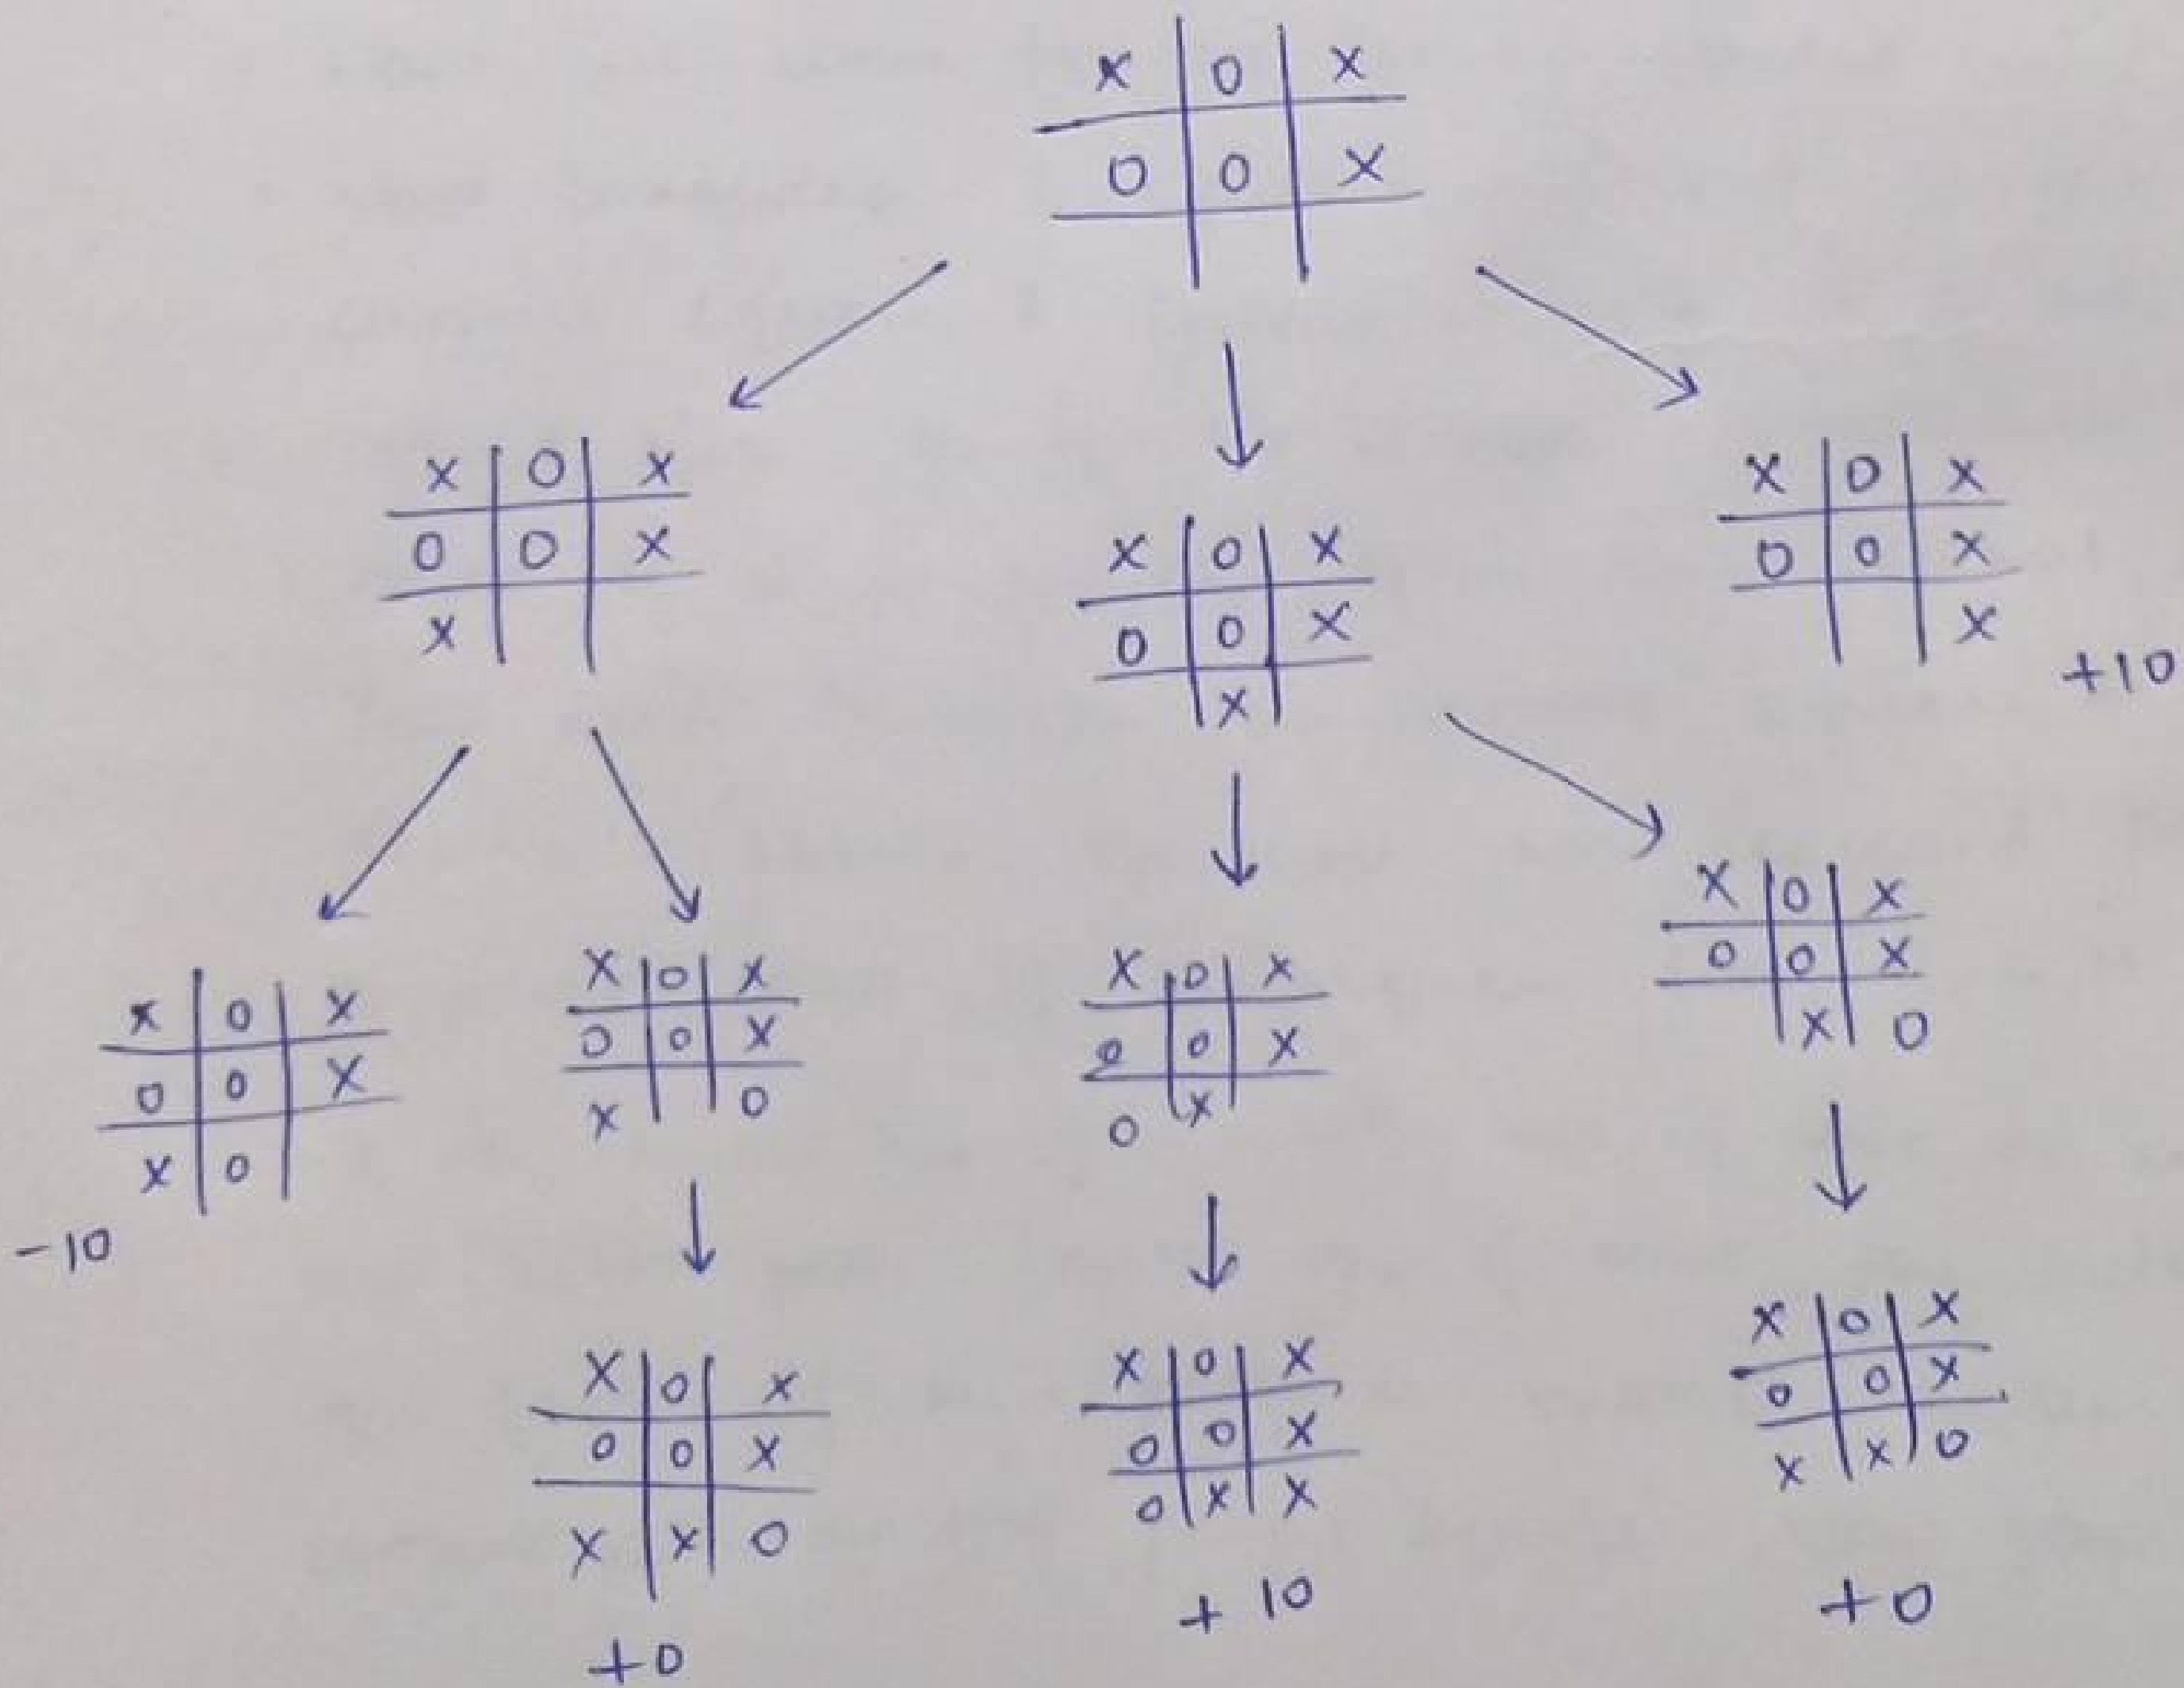 X O X
O O X
X O X
O O X
X
X O X
O O X
X
X O X
O O X
X
+10
X O X
O O X
X O
-10
X O X
O O X
X O
X O X
O O X
O X
X O X
O O X
X O
X O X
O O X
X X O
+0
X O X
O O X
O X X
+ 10
X O X
O O X
X X O
+0